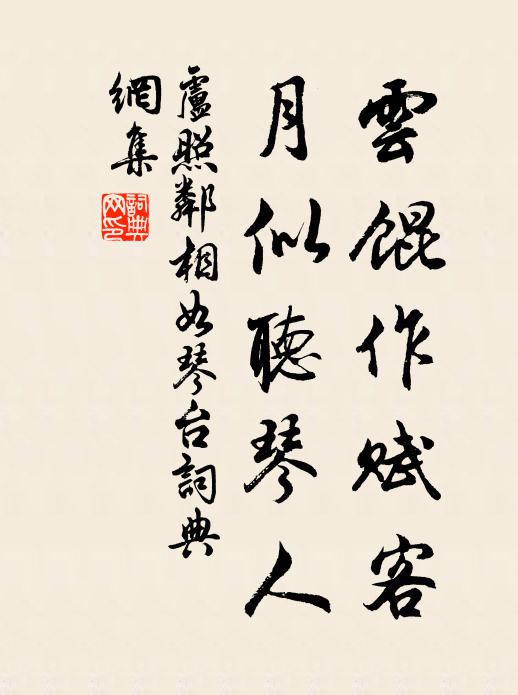 雲餛作賦客
月似聽琴人
盧照鄰相如琴台詞典
網集
詞典
网印